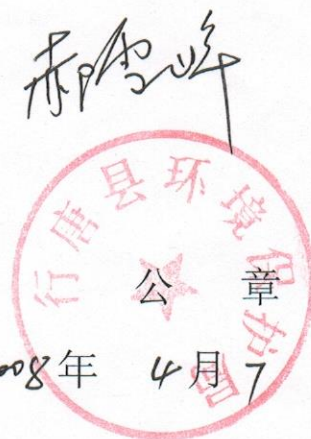 郝雪峰
行唐县环境保护局
公 章
2008年 4月7